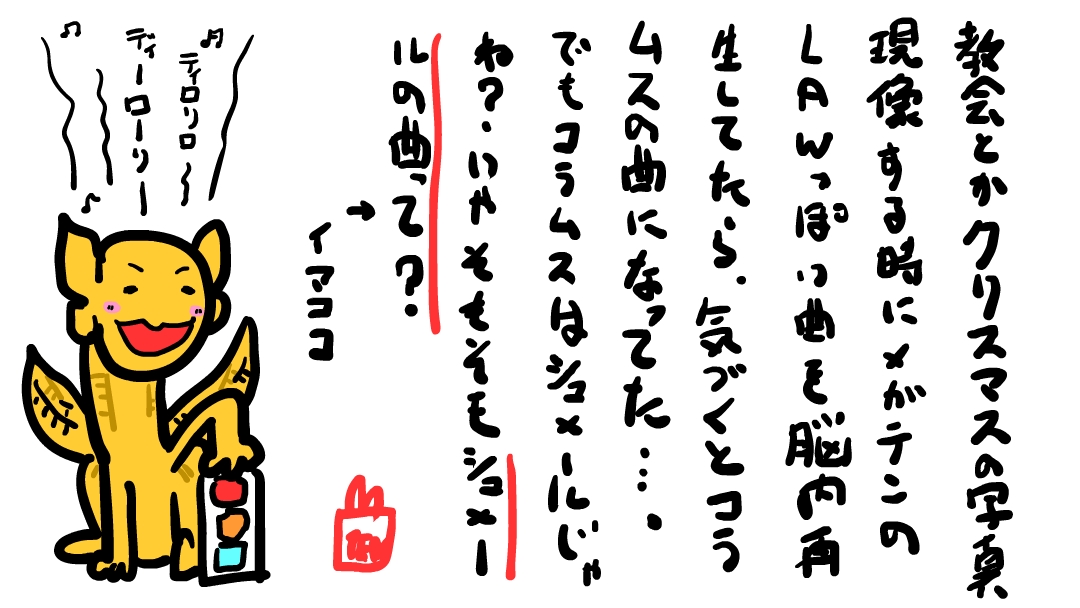 教会とかクリスマスの写真
現像する時にメガテンの
LAWっぽい曲を脳内再
生してたら、気づくとコラ
ムスの曲になってた…。
でもコラムスはシュメールじゃ
ね?、いやそもそもシュメー
ルの曲って?
→
イマココ
ティロリロ～
ディーローリー